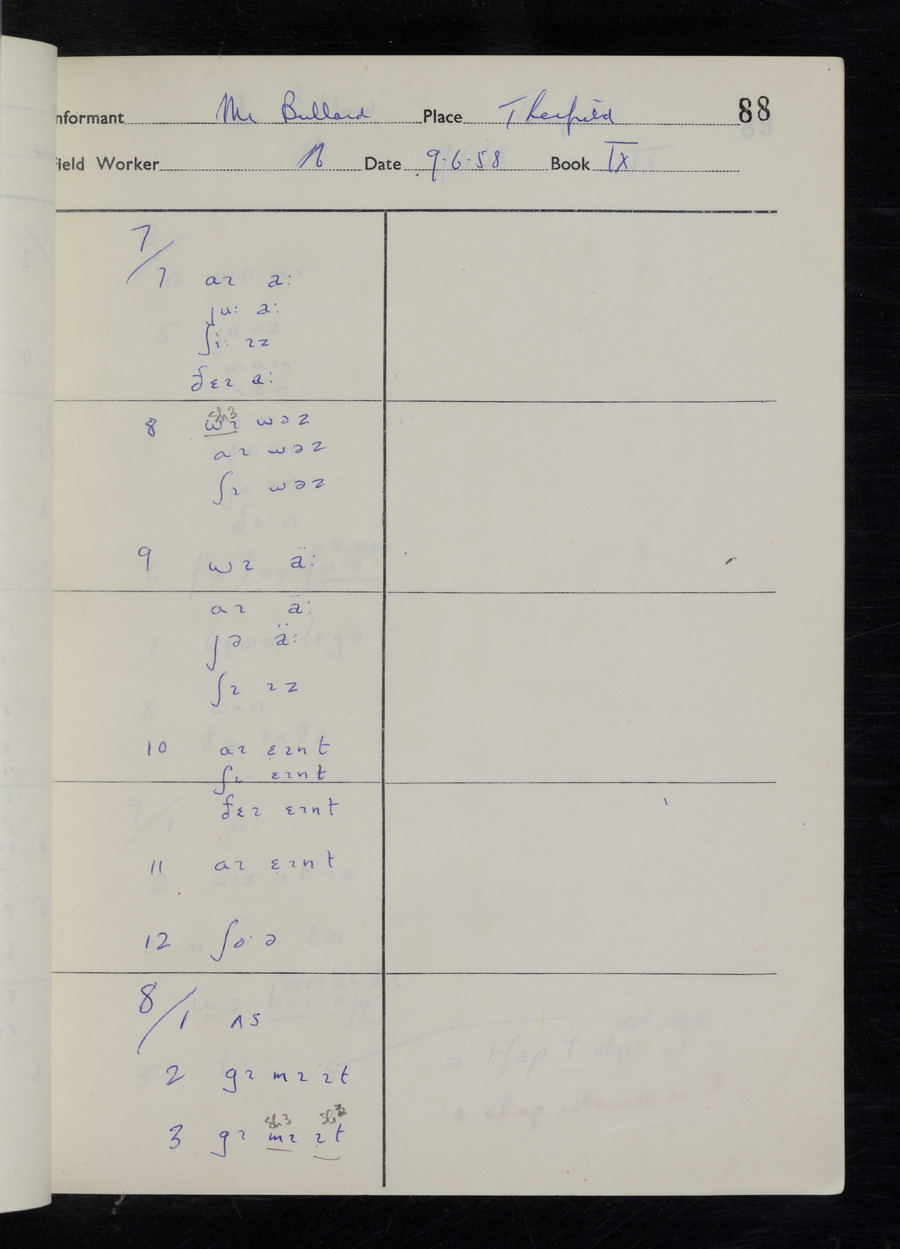 nformant Mr Bullard Place Therfield 88
ield Worker Date 9·6·58 Book IX
7/7 aɪ a:
ju: a:
ʃi: ɪz
ðɛɪ a:
sh3
8 wɪ wəz
aɪ wəz
ʃɪ wəz
9 wɪ ä:
aɪ ä:
jə ä:
ʃɪ ɪz
10 aɪ ɛɪnt
ʃɪ ɛɪnt
ðɛɪ ɛɪnt
11 aɪ ɛɪnt
12 ʃoˑə
8/1 ʌs
2 gɪ mɪ ɪt
sh3 sh3
3 gɪ mɪ ɪt